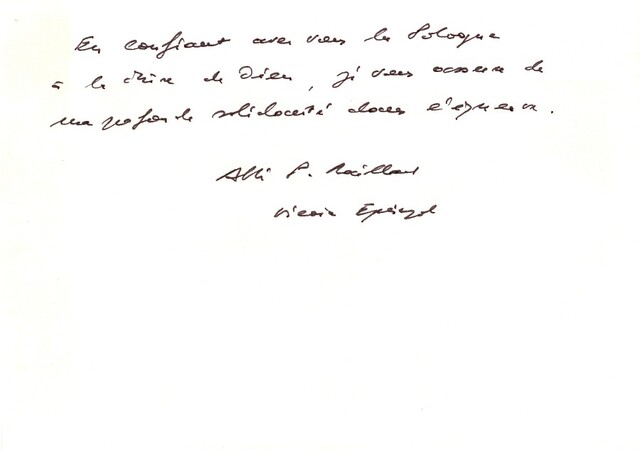 En confiant avec vous la Pologne
à la de Dieu, je vous assure de
ma profonde solidarité dans l'épreuve.
Abbé P.
Vicaire Episcopal